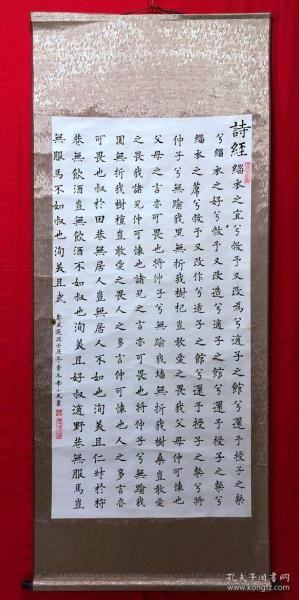 詩經
緇衣之宜兮敝予又改為兮適子之館兮還予授子之粲
兮緇衣之好兮敝予又改造兮適子之館兮還予授子之粲兮
緇衣之蓆兮敝予又改作兮適子之館兮還予授子之粲兮將
仲子兮無踰我里無折我樹杞豈敢愛之畏我父母仲可懷也
父母之言亦可畏也將仲子兮無踰我墻無折我樹桑豈敢愛
之畏我諸兄仲可懷也諸兄之言亦可畏也將仲子兮無踰我
園無折我樹檀豈敢愛之畏人之多言仲可懷也人之多言亦
可畏也叔於田巷無居人豈無居人不如也洵美且仁叔於狩
巷無飲酒豈無飲酒不如叔也洵美且好叔適野巷無服馬豈
無服馬不如叔也洵美且武
鄭風選段壬辰年季冬李小書
孔夫子旧书网